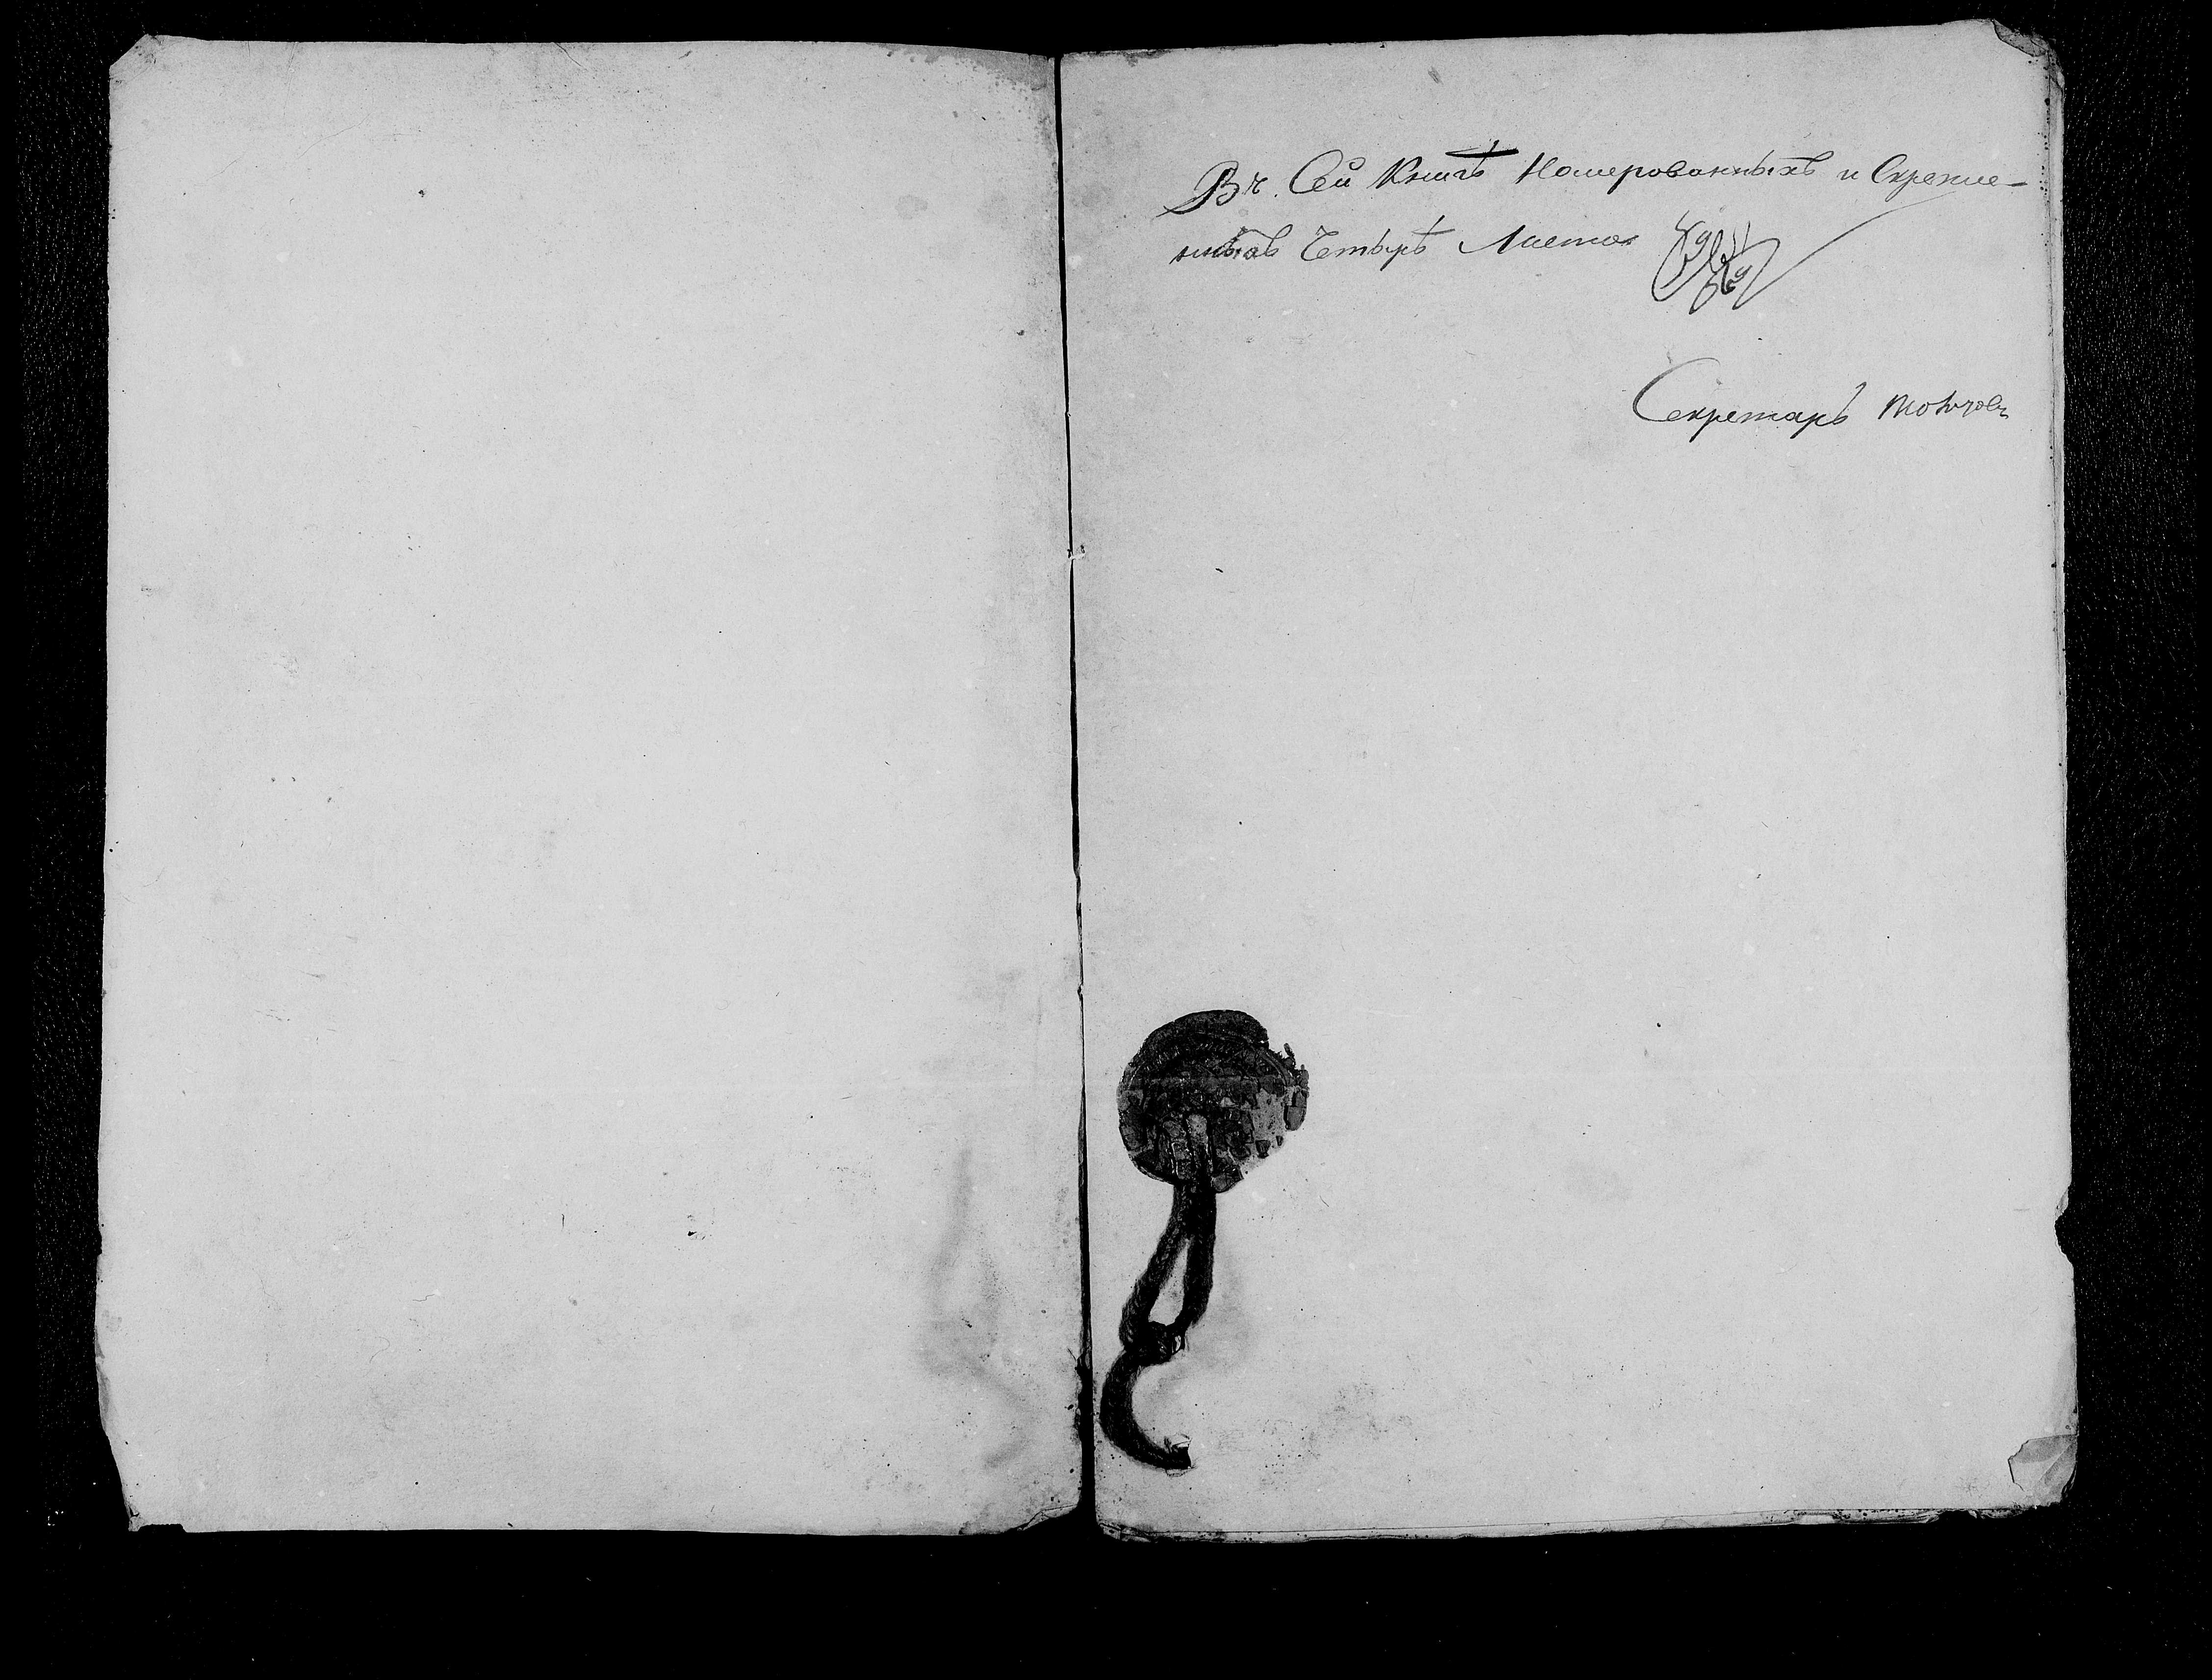 Въ Сей Книгѣ Номерованныхъ и Скрепле-
нныхъ Четырѣ Листа
Секретарь